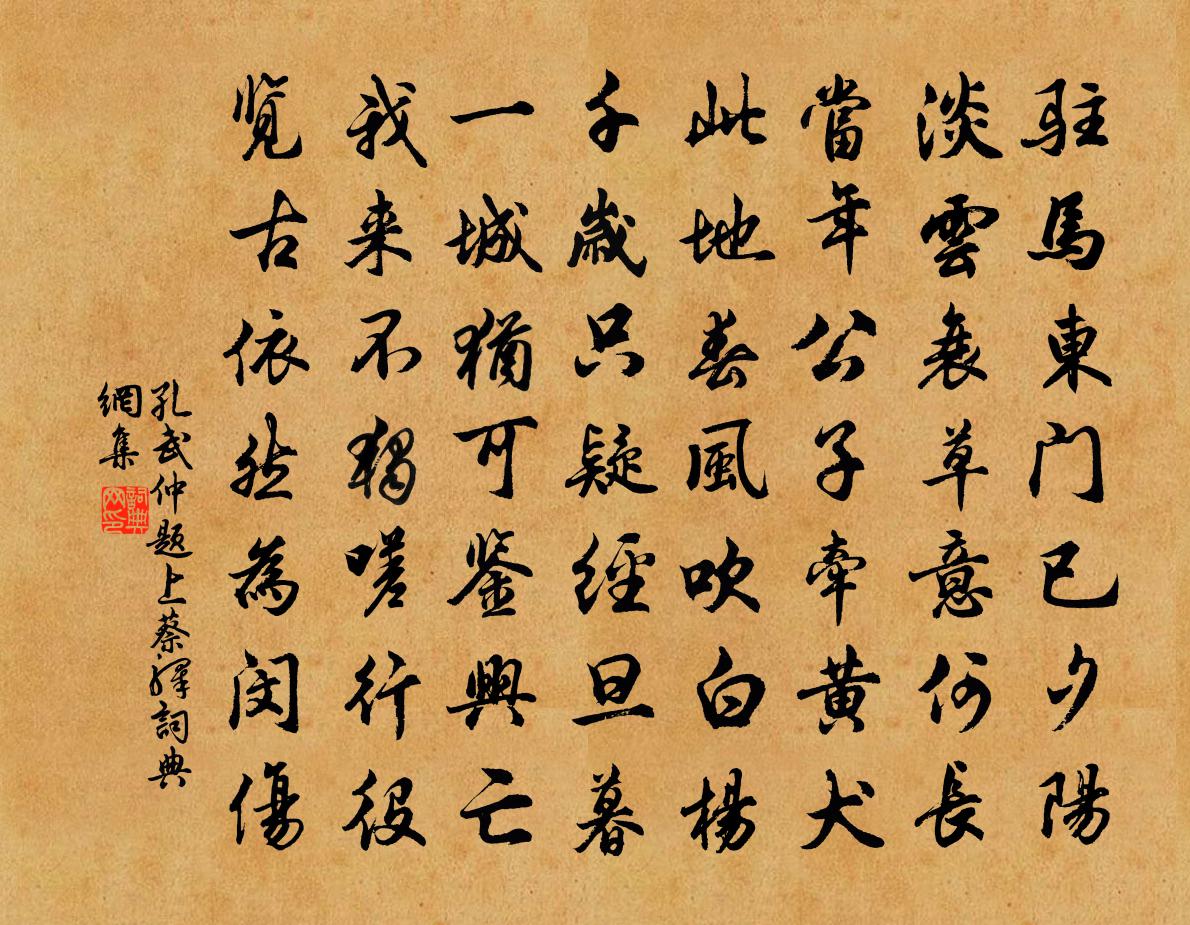 駐馬東门已夕陽
淡雲衰草意何長
當年公子牽黄犬
此地春風吹白楊
千歲只疑經旦暮
一城猶可鉴興亡
我来不独嗟行役
览古依然為闵傷
孔武仲题上蔡驛詞典
網集
詞典
网印